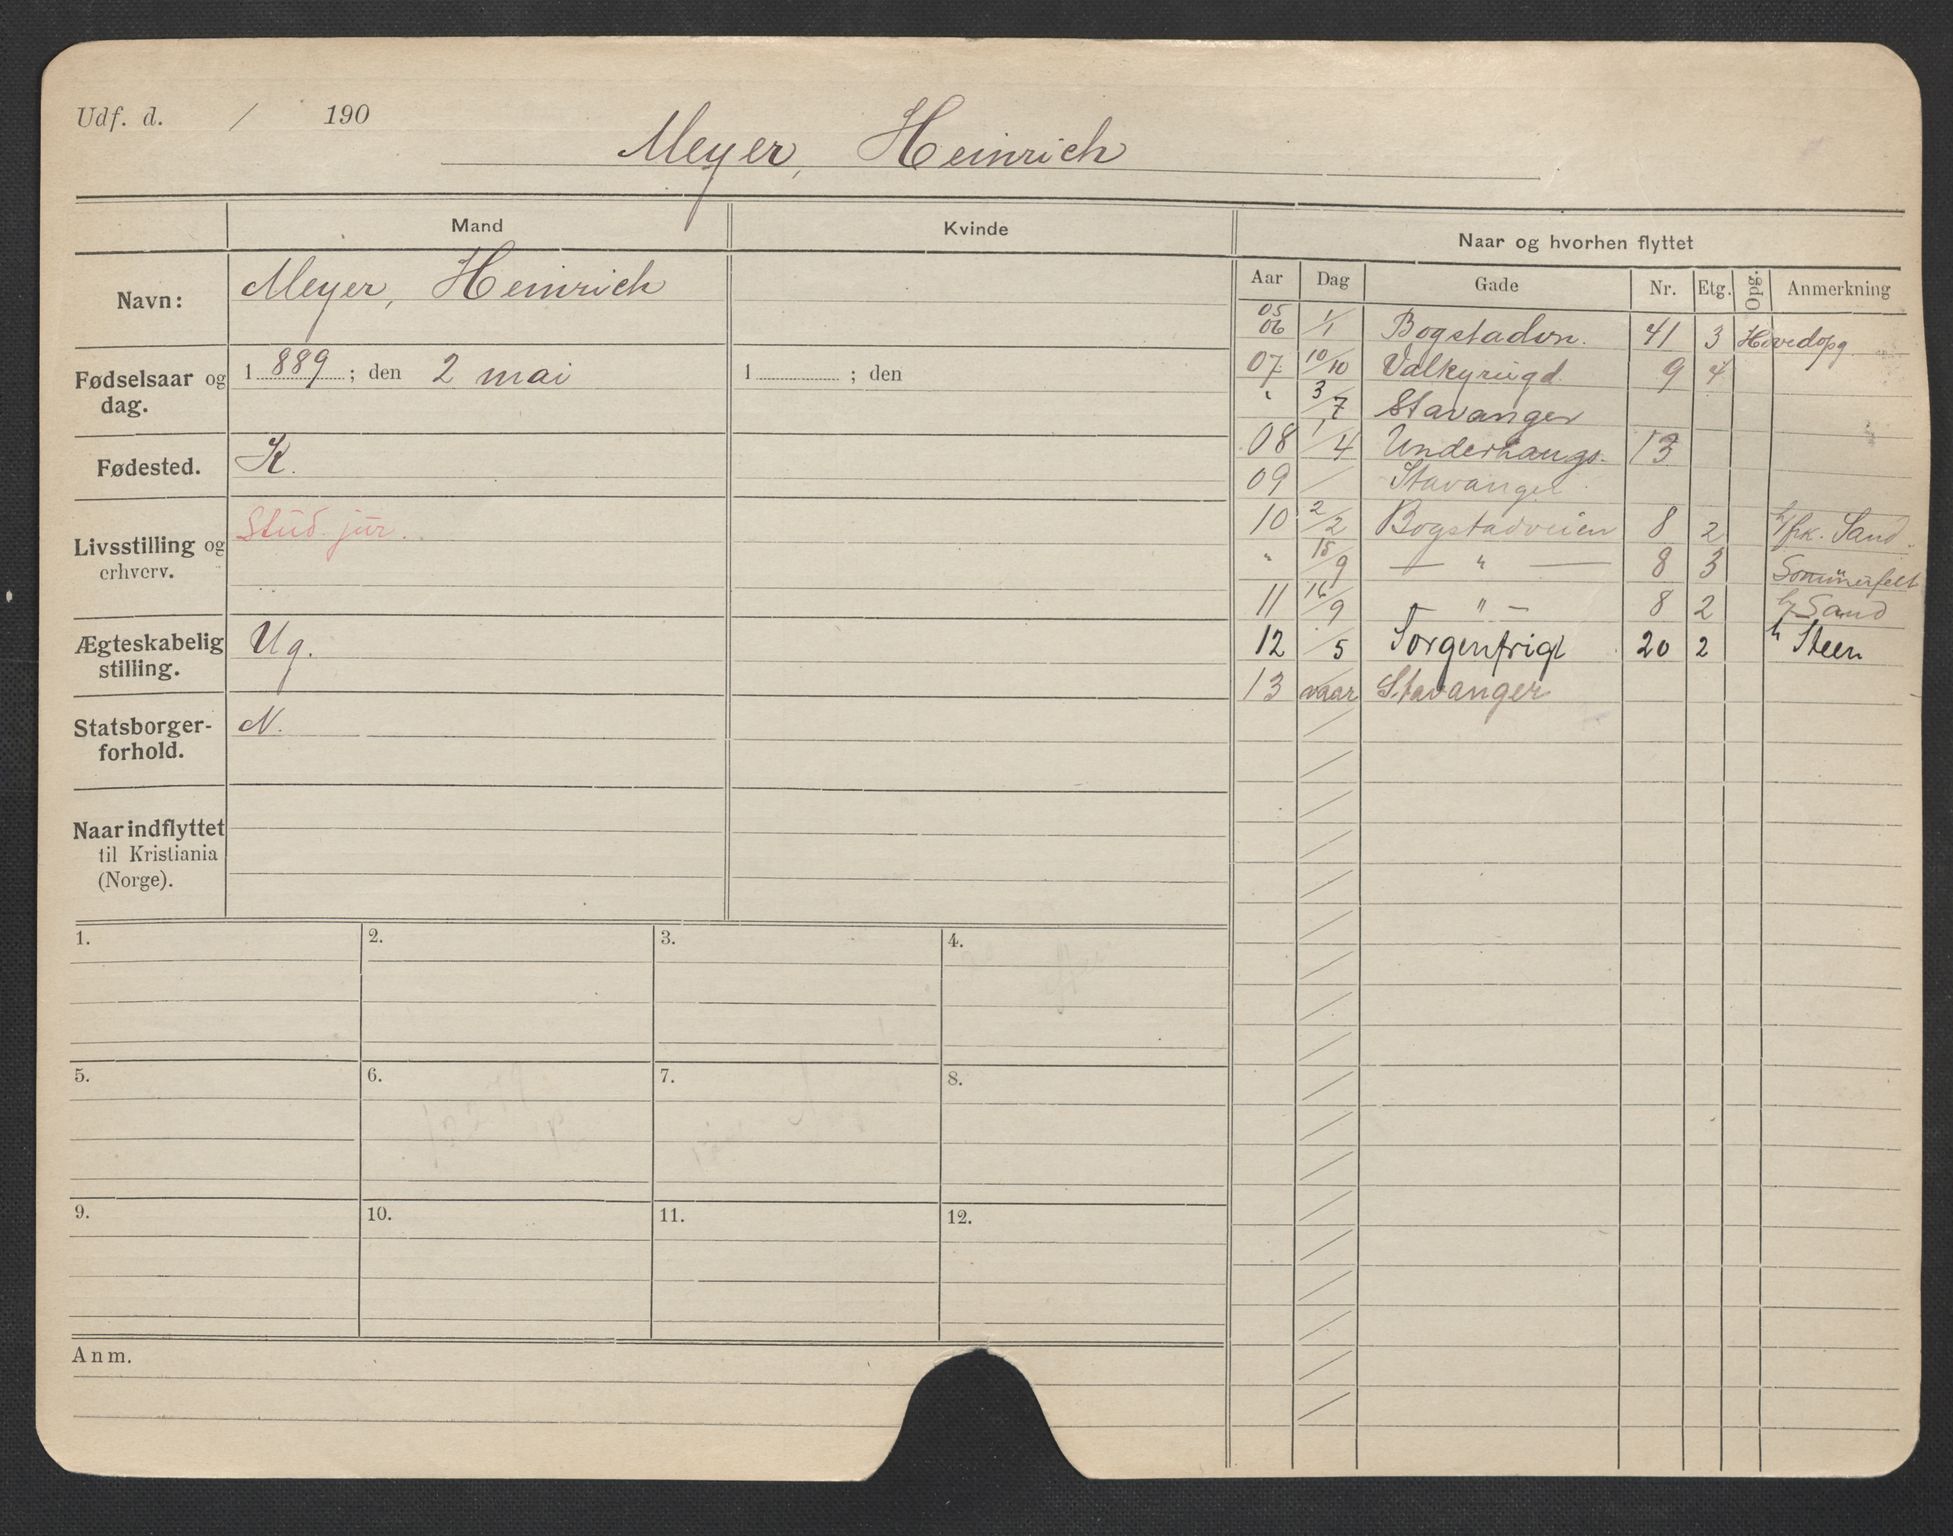 Udf. d. / 190
Meyer, Heinrich
Mand
Kvinde
Naar og hvorhen flyttet
Navn:
Meyer, Heinrich
Fødselsaar og dag.
1889; den 2 mai
1 ; den
Fødested.
K.
Livsstilling og erhverv.
Stud. jur.
Ægteskabelig stilling.
Ug.
Statsborgerforhold.
N.
Naar indflyttet
til Kristiania
(Norge).
Aar Dag Gade Nr. Etg. Opg. Anmerkning
05
06 1/1 Bogstadvn. 41 3 Hovedopg.
07 10/10 Valkyriegd. 9 4
" 3/7 Stavanger
08 1/4 Underhaugs. 13
09 / Stavanger
10 2/2 Bogstadveien 8 2 h/frk. Sand.
" 15/9 — " — 8 3 Sommerfelt
11 16/9 — " — 8 2 h/Sand
12 /5 Sorgenfrigt 20 2 h Steen
13 vaar Stavanger
1.
2.
3.
4.
5.
6.
7.
8.
9.
10.
11.
12.
Anm.